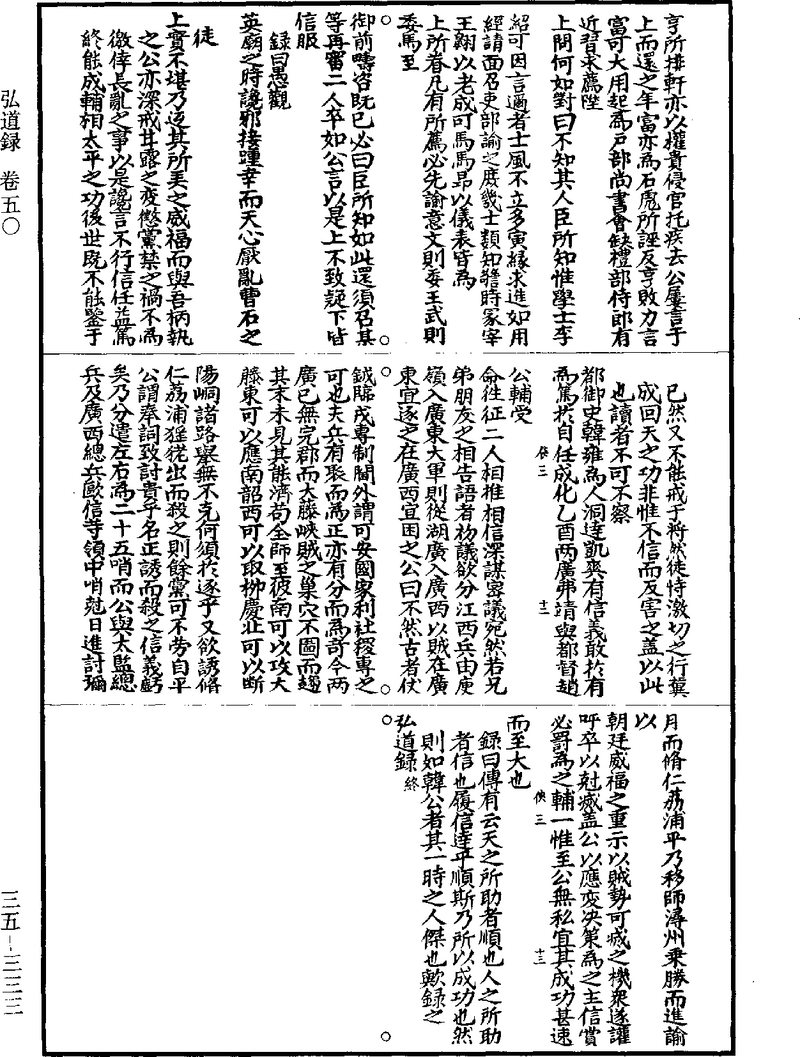 亨所排軒亦以權貴侵官托疾去公屢言于
上而還之年富亦為石彪所誣反亨敗力言
富可大用起為戶部尚書會缺禮部侍郎有
近習求薦陞
上問何如對曰不知其人臣所知惟學士李
紹可因言邇者士風不立多寅緣求進如用
經請面召吏部諭之庶幾士類知警時冢宰
王翱以老成可馬馬昂以儀表皆為
上所眷凡有所薦必先諭意文則委王武則
委馬至
御前疇咨既已必曰臣所知如此還須召其
等再審二人卒如公言以是上不致疑下皆
信服
錄曰愚觀
英廟之時讒邪接踵幸而天心厭亂曹石之
徒
上實不堪乃迄其所美之威福而與吾柄執
之公亦深戒甘露之变懲黨禁之禍不為
徼倖長亂之事以是讒言不行信任益篤
終能成輔相太平之功後世既不能鑒于
已然又不能戒于将然徒恃激切之行冀
成回天之功非惟不信而反害之盖以此
也讀者不可不察
都御史韓雍為人洞達凱爽有信義敢於有
為篤於自任成化乙酉两廣弗靖與都督趙
公輔受
命徃征二人相推相信深謀宻議宛然若兄
弟朋友之相告語者初議欲分江西兵由庾
嶺入廣東大軍則從湖廣入廣西以賊在廣
東宜逐之在廣西宜困之公曰不然古者仗
鉞臨戎専制閫外謂可安國家利社稷専之
可也夫兵有聚而為正亦有分而為竒今两
廣已無完郡而大藤峽賊之巢穴不圖而趨
其末未見其能濟苟全師至彼南可以攻大
藤東可以應南韶西可以取柳慶北可以断
陽峒諸路舉無不克何須於逐乎又欲誘脩
仁荔浦猺獞出而殺之則餘黨可不劳自平
公謂奉詞致討貴乎名正誘而殺之信義虧
矣乃分遣左右為二十五哨而公與太監總
兵及廣西總兵歐信等領中哨尅日進討彌
月而脩仁荔浦平乃移師潯州乗勝而進諭
以
朝廷威福之重示以賊勢可滅之機衆遂讙
呼卒以尅滅盖公以應変决策為之主信賞
必罰為之輔一惟至公無私宜其成功甚速
而至大也
錄曰傳有云天之所助者順也人之所助
者信也履信達乎順斯乃所以成功也然
則如韓公者其一時之人傑也歟錄之
弘道錄 终
弘道録 卷五〇
三五-三三三